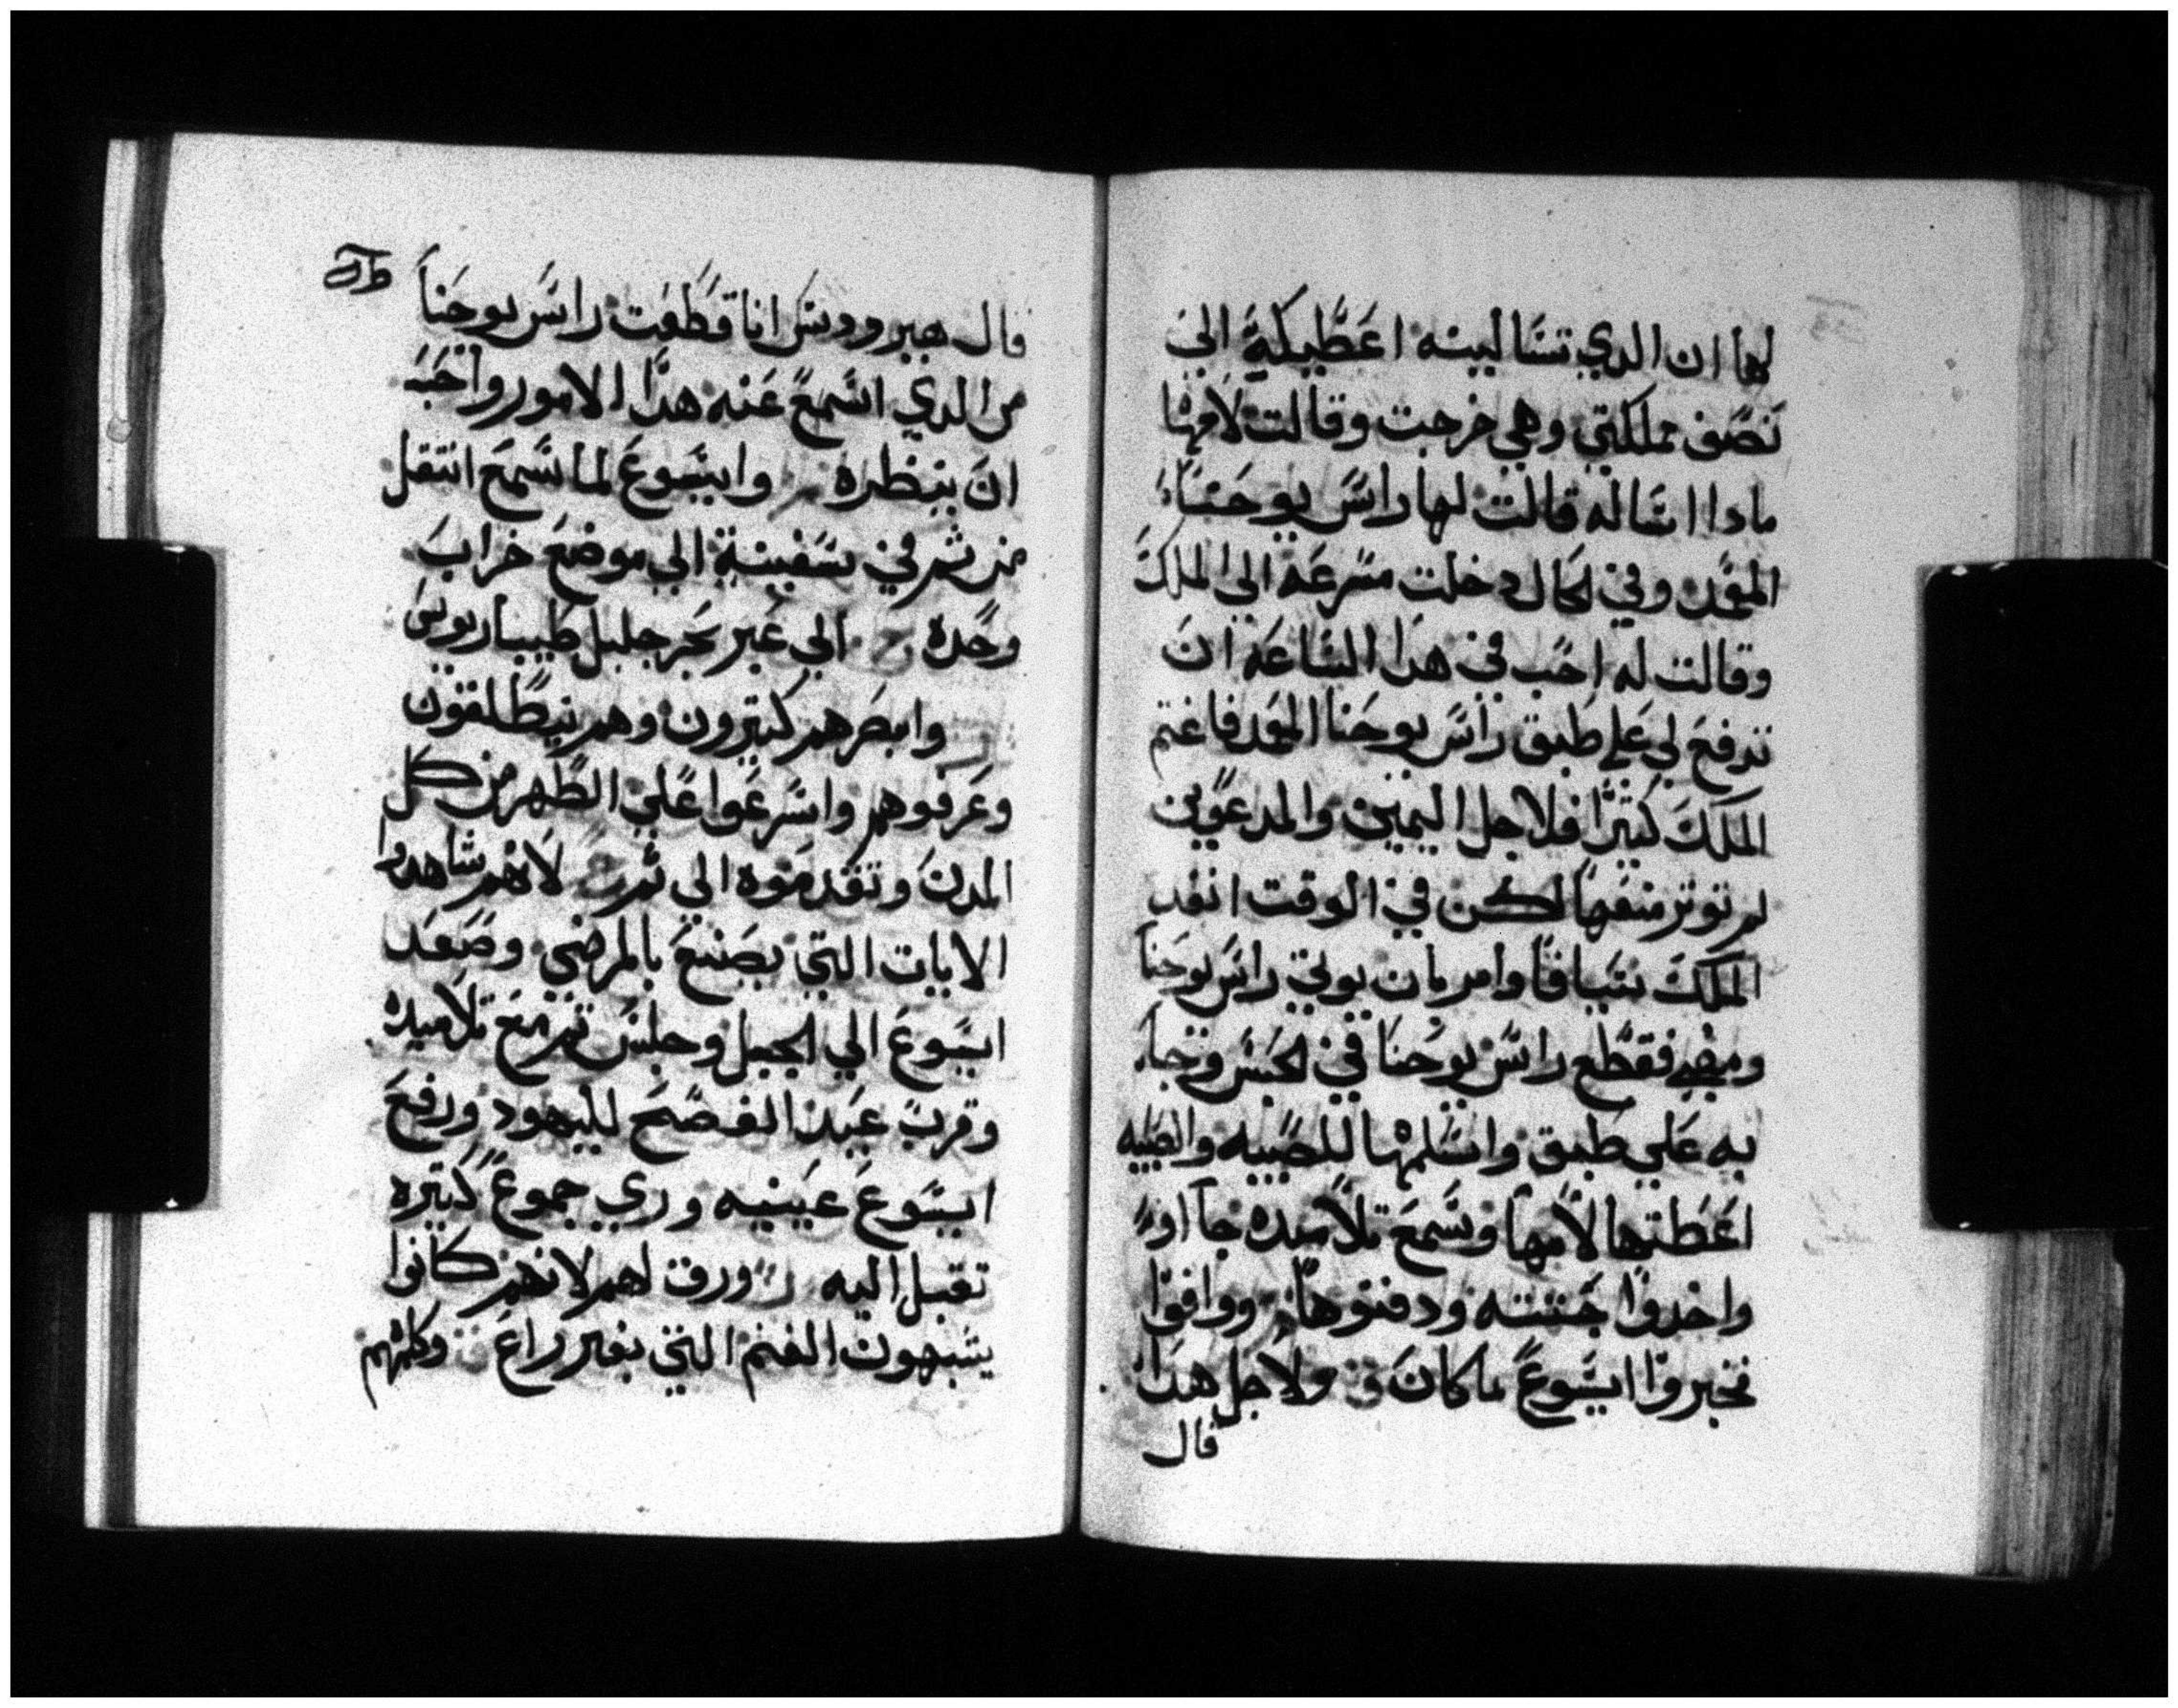 لها ان الدي تسالينه اعطيكيه الى
نصف مملكتي وهي خرجت وقالت لامها
مادا اساله قالت لها راس يوحنا
المعمد وفي الحال دخلت مسرعه الى الملك
وقالت له احب في هدا الساعه ان
تدفع لي على طبق راس يوحنا المعمد فاغتم
الملك كثيرا فلاجل اليمين والمدعوين
لم توتر منعها لكن في الوقت انفد
الملك سيافا وامر بان يوتي راس يوحنا
ومضى فقطع راس يوحنا في الحبس وجا
به علي طبق واسلمها للصبيه والصبيه
اعطتها لامها وسمع تلاميده جاا
واخدوا جتته ودفنوها ووافوا
نخبروا ايسوع بما كان ولاجل هدا
قال
قال هيرودس انا قطعت راس يوحنا
من الدي اسمع عنه هدا الامور واحب
ان ينظره وايسوع لما سمع انتقل
من ثم في سفينة الي موضع خراب
وحده الي عبر بحر جليل طيباريوس
وابصرهم كتيرون وهم ينطلقون
وعرفوهم واسرعوا علي الطهر من كل
المدن وتقدموه الى ثم لانهم شاهدوا
الايات التي يصنع بالمرضى وصعد
ايسوع الي الجبل وجلس ثم مع تلاميده
وقرب عيد الفصح لليهود ورفع
ايسوع عينيه وري جموع كتيره
تقبل اليه ورق لهم لانهم كانوا
يشبهون الغنم التي بغير راع وكلمهم